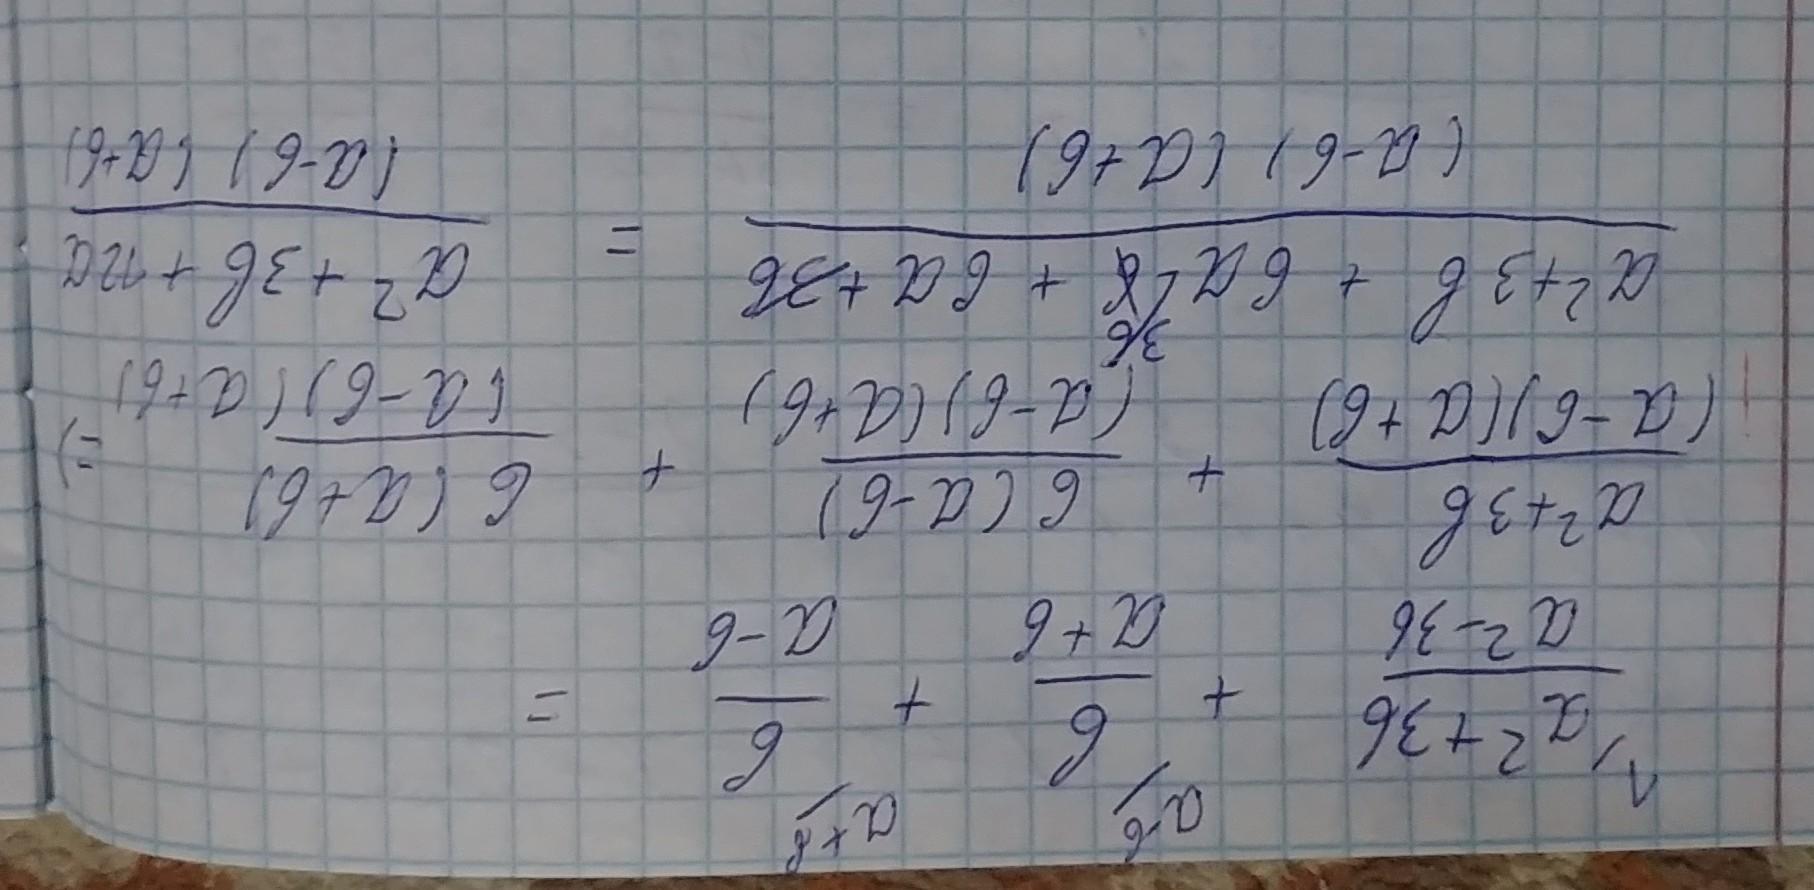 1 a-6 a+6
(a²+36)/(a²-36) + 6/(a+6) + 6/(a-6) =
(a²+36)/((a-6)(a+6)) + 6(a-6)/((a-6)(a+6)) + 6(a+6)/((a-6)(a+6)) =)
(a²+36 + 6a-36 + 6a+36)/((a-6)(a+6)) = (a²+36+12a)/((a-6)(a+6))